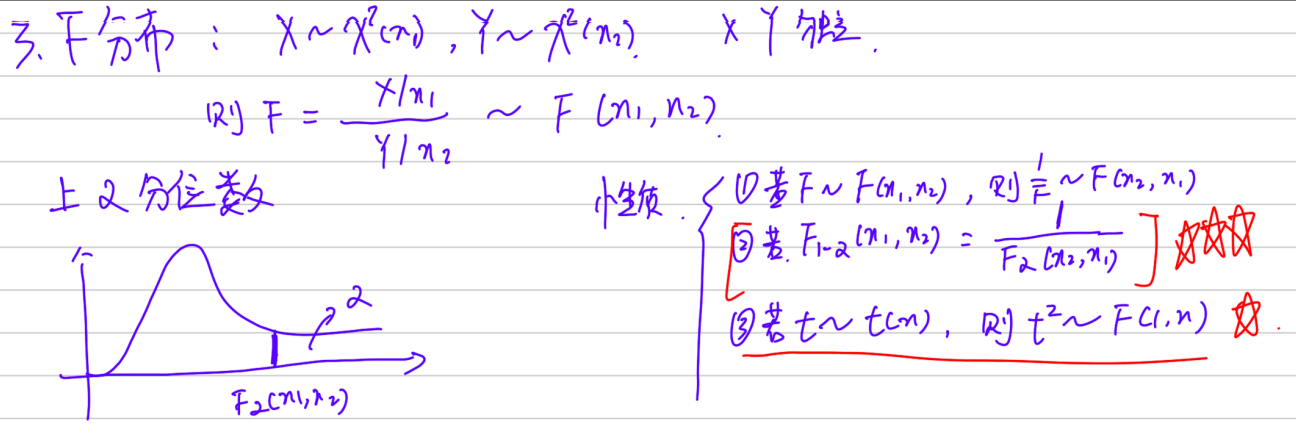 3. F分布： X~χ²(n₁), Y~χ²(n₂). X Y 独立.
则 F = (X/n₁)/(Y/n₂) ~ F(n₁, n₂).
上α分位数
性质.
①若F~F(n₁,n₂), 则 1/F ~ F(n₂,n₁)
②若. F₁₋α(n₁,n₂) = 1/Fα(n₂,n₁)
③若 t~t(n), 则 t²~F(1,n)
α
Fα(n₁,n₂)